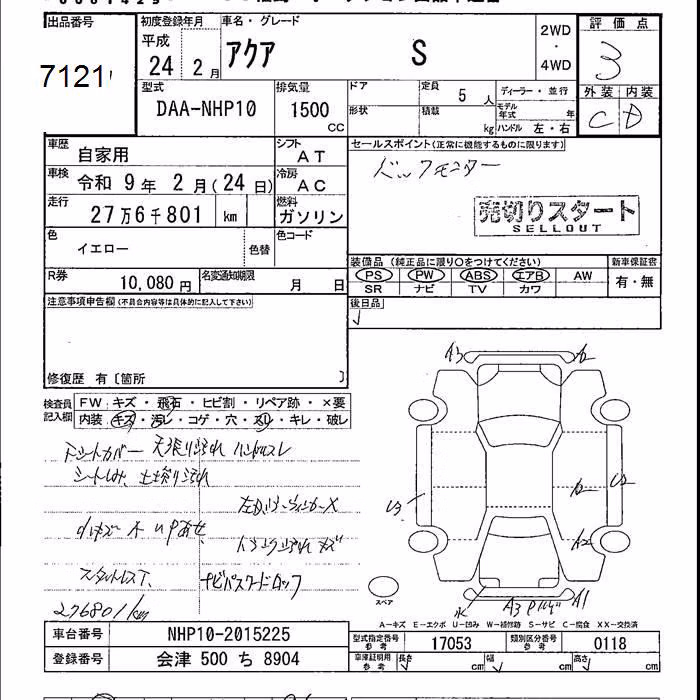 出品番号
7121
初度登録年月
平成
24 2 月
車名・グレード
アクア S
2WD
・
4WD
評価点
3
外装 内装
C D
型式
DAA-NHP10
排気量
1500
CC
ドア
定員
5 人
形状
積載
kg
ディーラー・並行
モデル年式 年
ハンドル 左・右
車歴
自家用
シフト
AT
車検
令和 9 年 2 月(24 日)
冷房
AC
走行
27万6千801 km
燃料
ガソリン
色
イエロー
色替
色コード
R券
10,080 円
名変通知期限
月 日
セールスポイント(正常に機能するものに限ります)
バックモニター
売切りスタート
SELLOUT
装備品 (純正品に限り○をつけてください)
PS PW ABS エアB AW
SR ナビ TV カワ
新車保証書
有・無
後日品
注意事項申告欄(不具合内容等は具体的に記入して下さい)
修復歴 有〔箇所 〕
検査員
記入欄
FW キズ・飛石・ヒビ割・リペア跡・×要
内装 キズ・汚レ・コゲ・穴・スレ・キレ・破レ
シートカバー 天張り汚れ ハンドルスレ
シートしみ、
左ドアミラーウィンカー×
スタットレスT、 ナビパスワードロック
276801km
A3 A2
U3 U2
A2
A2
A3 A1
スペア
A-キズ E-エクボ U-凹み W-補修跡 S-サビ C-腐食 XX-交換済
車台番号 NHP10-2015225
登録番号 会津 500 ち 8904
型式指定番号
参考
17053
類別区分番号
参考
0118
車庫証明用
参考
長さ cm 幅 cm 高さ cm